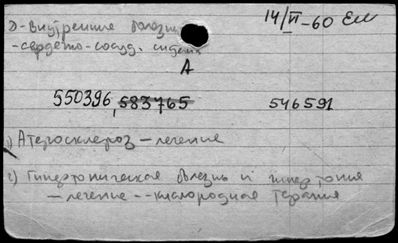 Д-внутренние болезни 14/VI-60
-сердечно-сосуд. система
А
550396, 583765 546591
1) Атеросклероз - лечение
2) Гипертоническая болезнь и гипертония
- лечение -- кислородная терапия